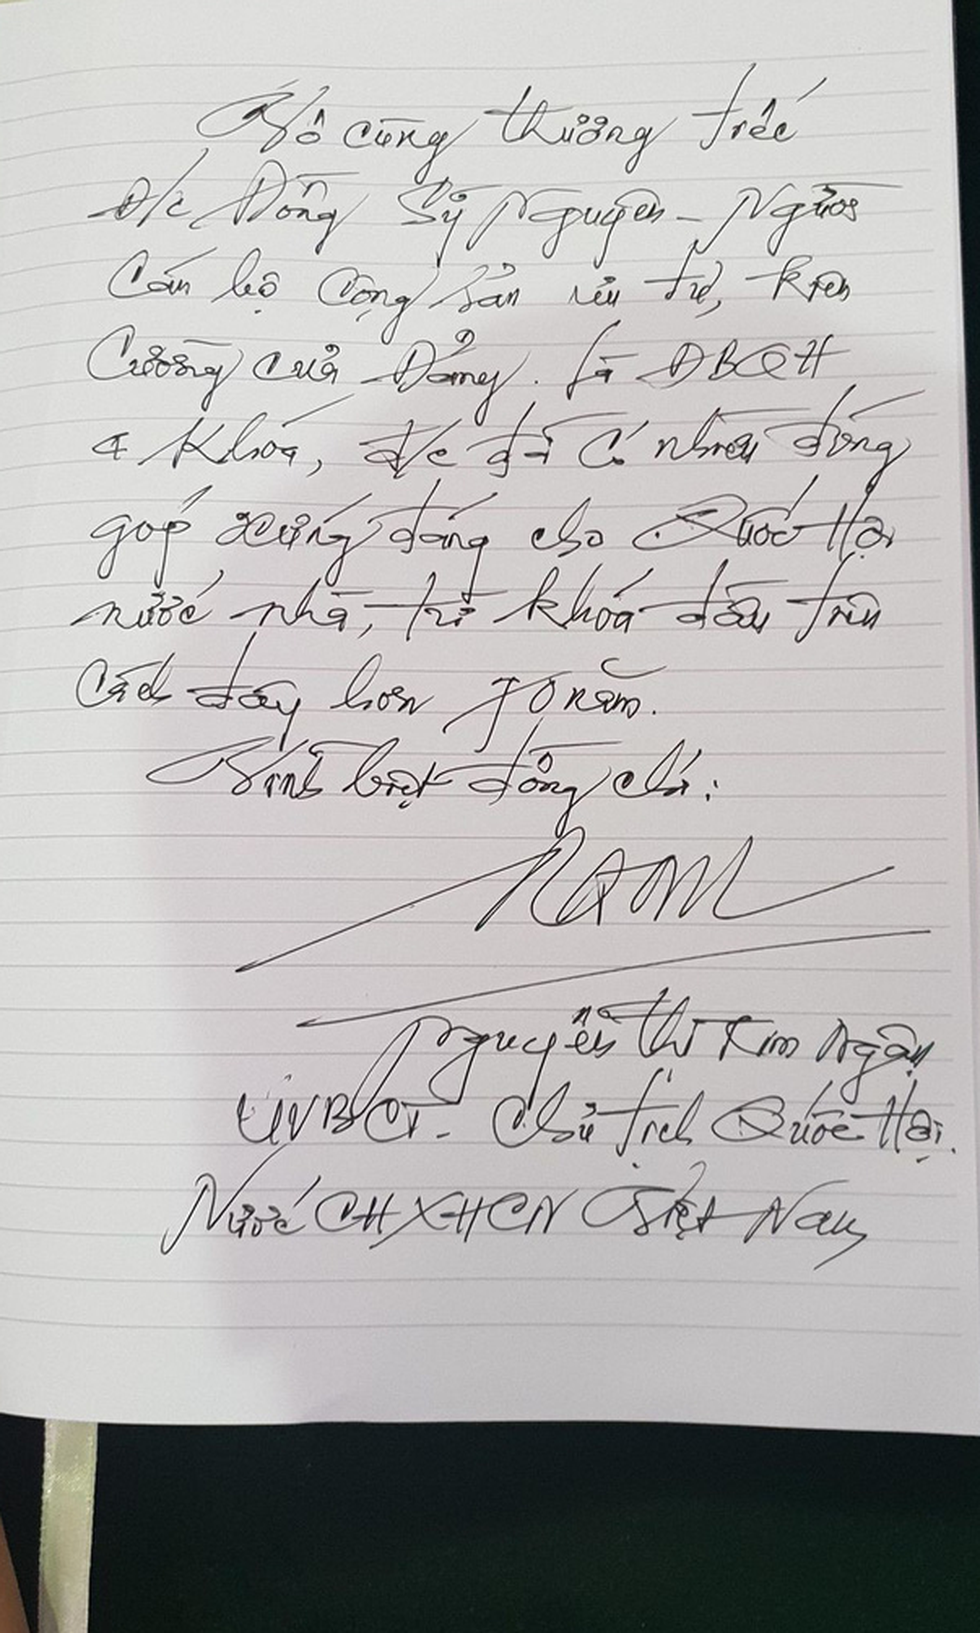 Vô cùng thương tiếc
Đ/c Đồng Sỹ Nguyên - Người
Cán bộ cộng sản ưu tú, kiên
Cường của Đảng. Là ĐBQH
4 khóa, đ/c đã có nhiều đóng
góp xứng đáng cho Quốc Hội
nước nhà, từ khóa đầu tiên
cách đây hơn 70 năm.
Vĩnh biệt đồng chí.
Nguyễn Thị Kim Ngân
UVBCT - Chủ tịch Quốc Hội.
Nước CHXHCN Việt Nam